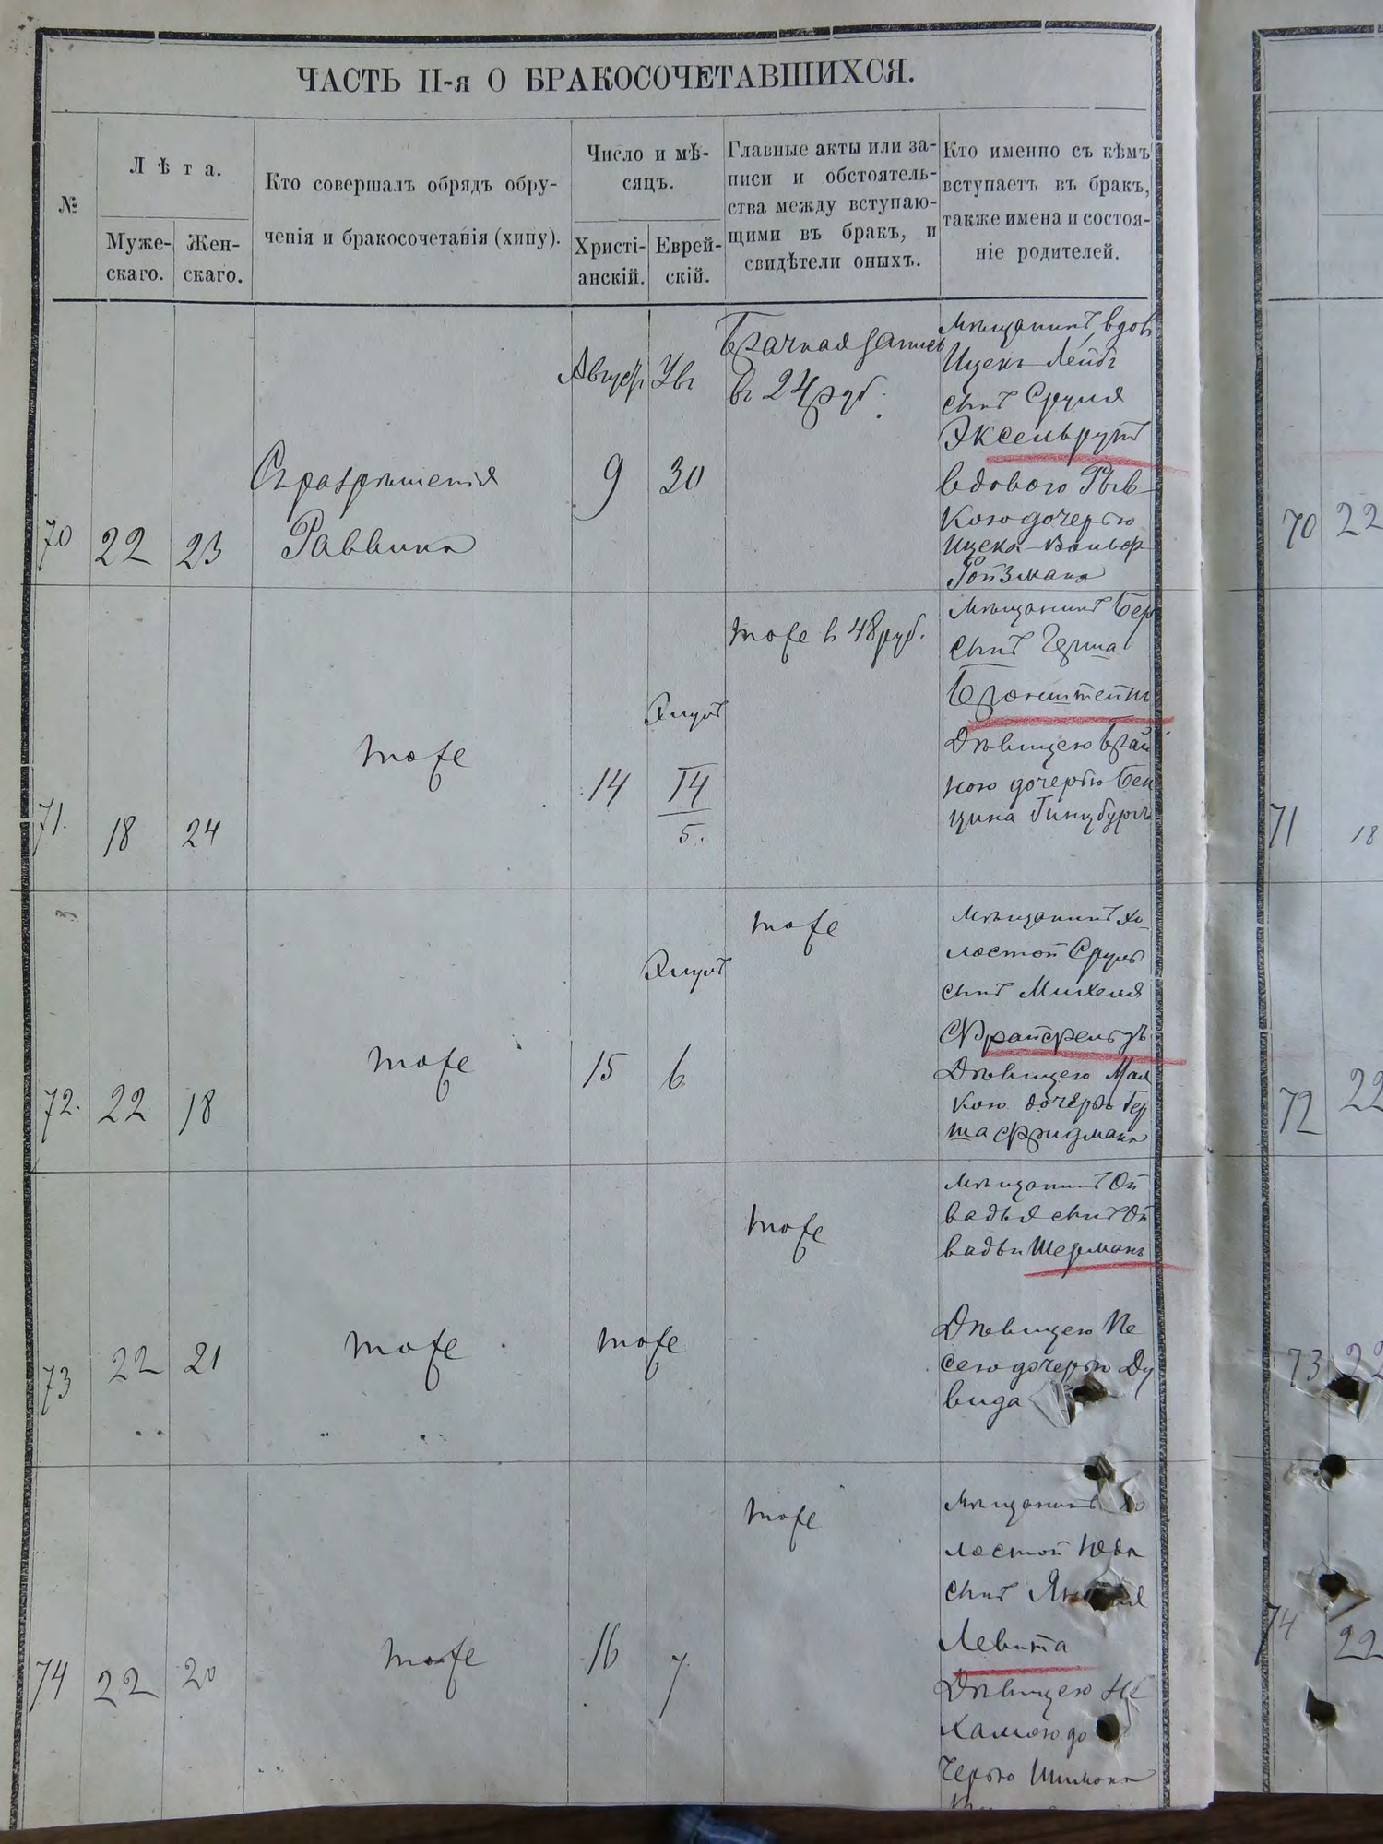 ЧАСТЬ II-я О БРАКОСОЧЕТАВШИХСЯ.
№
Лѣта.
Муже-
скаго.
Жен-
скаго.
Кто совершалъ обрядъ обру-
ченія и бракосочетанія (хипу).
Число и мѣ-
сяцъ.
Христі-
анскій.
Еврей-
скій.
Главные акты или за-
писи и обстоятель-
ства между вступаю-
щими въ бракъ, и
свидѣтели оныхъ.
Кто именно съ кѣмъ
вступаетъ въ бракъ,
также имена и состоя-
ніе родителей.
70
22
23
Съ разрѣшенія
Раввина
Август
9
Ув
30
Брачная запись
въ 24 руб.
Мѣщанинъ, вдов
Ицекъ Лейбъ
сынъ Сруля
Эксельрутъ
вдовою Рыв-
кою дочерью
Ицека-Вольф
Ройзмана
70
22
71.
18
24
тоже
14
Элулъ
14
5.
тоже въ 48 руб.
Мѣщанинъ Бер
сынъ Герша
Бронштейнъ
Дѣвицею Брай
ною дочерью Бен
циона Гинцбурга
71
18
72.
22
18
тоже
15
Элулъ
6
тоже
Мѣщанинъ хо-
лостой Сруль
сынъ Михеля
Фрайфельдъ
Дѣвицею Мал
кою дочерью Гер
ша Фридмана
72
22
73
22
21
тоже
тоже
тоже
Мѣщанинъ Ой
вадья сынъ Ой
вадьи Шерманъ
Дѣвицею Пе
сею дочерью Ду
вида
73
22
74
22
20
тоже
16
7
тоже
Мѣщанинъ хо
лостой Юда
сынъ
Левита
Дѣвицею Не
хамою до
черью Шимона
74
22